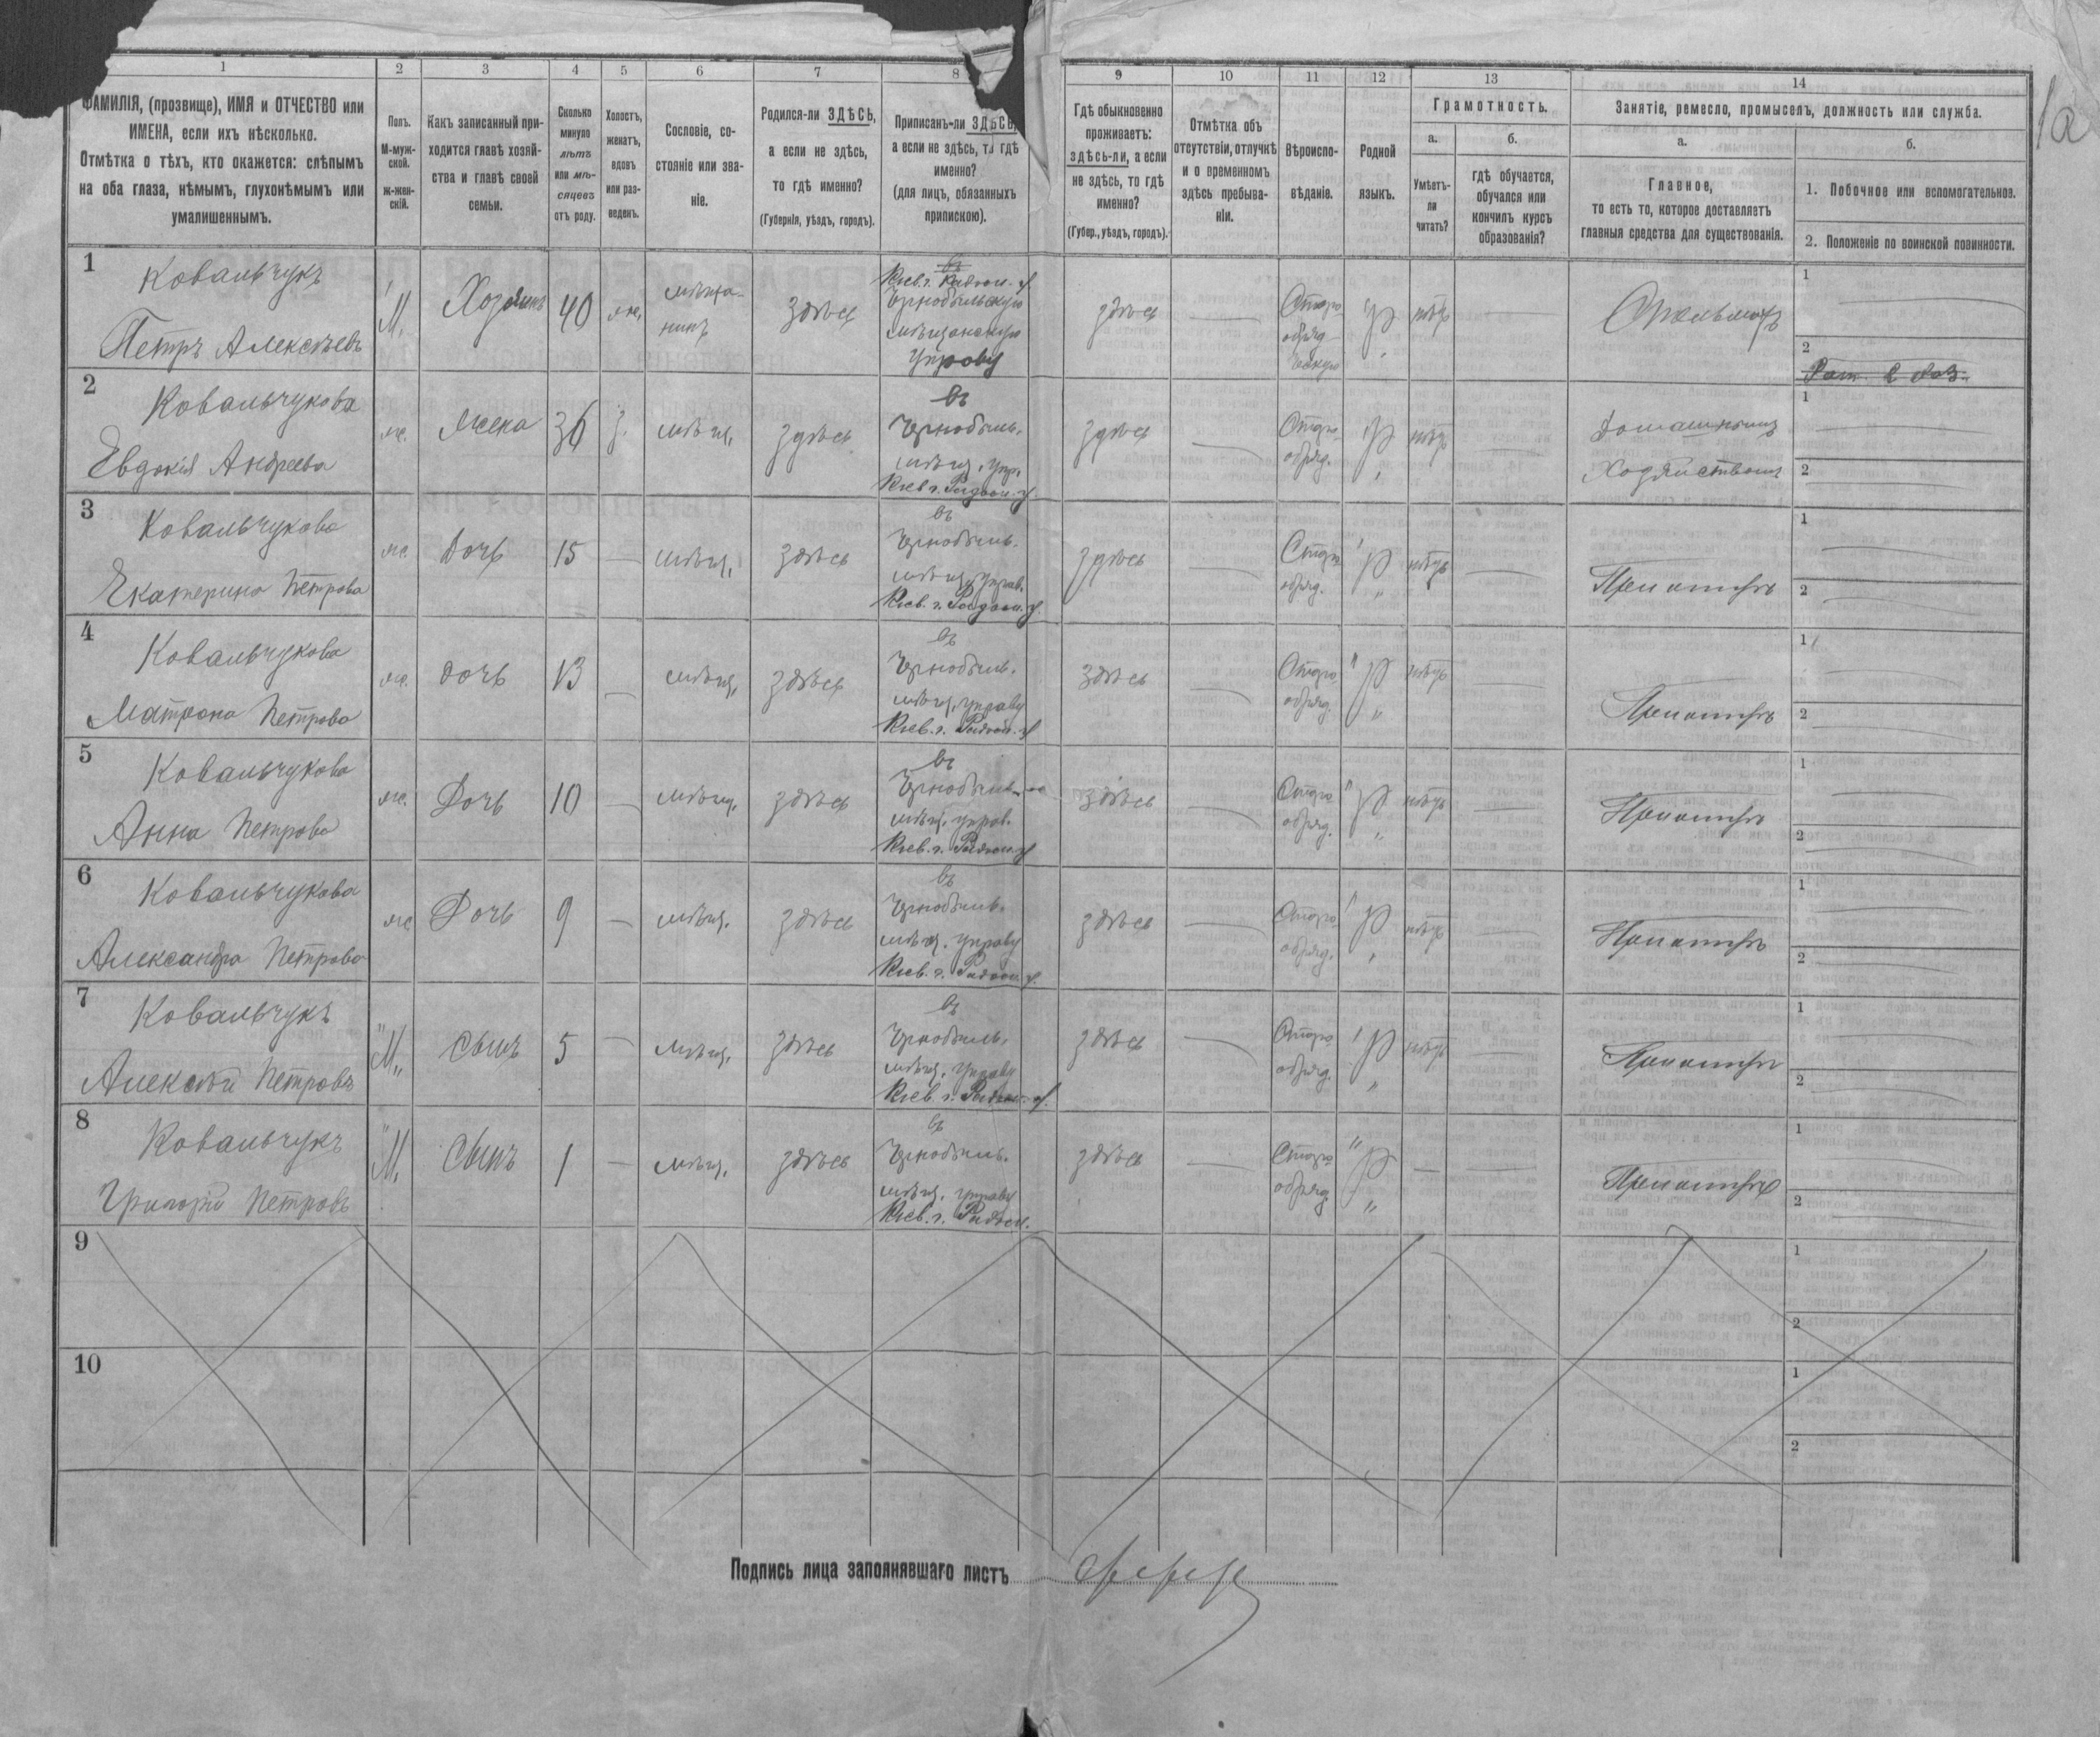 1 2 3 4 5 6 7 8 9 10 11 12 13 14
ФАМИЛІЯ, (прозвище), ИМЯ и ОТЧЕСТВО или
ИМЕНА, если ихъ нѣсколько.
Отмѣтка о тѣхъ, кто окажется: слѣпымъ
на оба глаза, нѣмымъ, глухонѣмымъ или
умалишеннымъ.
Полъ.
М-муж-
ской.
ж-жен-
скій.
Какъ записанный при-
ходится главѣ хозяй-
ства и главѣ своей
семьи.
Сколько
минуло
лѣтъ
или мѣ-
сяцевъ
отъ роду.
Холостъ,
женатъ,
вдовъ
или раз-
веденъ.
Сословіе, со-
стояніе или зва-
ніе.
Родился-ли ЗДѢСЬ,
а если не здѣсь,
то гдѣ именно?
(Губернія, уѣздъ, городъ).
Приписанъ-ли ЗДѢСЬ,
а если не здѣсь, то гдѣ
именно?
(для лицъ, обязанныхъ
припискою).
Гдѣ обыкновенно
проживаетъ:
здѣсь-ли, а если
не здѣсь, то гдѣ
именно?
(Губер., уѣздъ, городъ).
Отмѣтка объ
отсутствіи, отлучкѣ
и о временномъ
здѣсь пребыва-
ніи.
Вѣроиспо-
вѣданіе.
Родной
языкъ.
Грамотность.
а.
Умѣетъ-
ли
читать?
б.
гдѣ обучается,
обучался или
кончилъ курсъ
образованія?
Занятіе, ремесло, промыселъ, должность или служба.
а.
Главное,
то есть то, которое доставляетъ
главныя средства для существованія.
б.
1. Побочное или вспомогательное.
2. Положеніе по воинской повинности.
1
Ковальчукъ
Петръ Алексѣевъ
М.
Хозяинъ
40
же.
мѣща-
нинъ
здѣсь
въ
Кіев. г. Радом. у.
Чернобыльскую
мѣщанскую
управу
здѣсь
Старо
обряд
ческую
Р
нѣтъ
1
2
2
Ковальчукова
Евдокія Андреева
же.
Жена
36
з.
мѣщ.
здѣсь
въ
Чернобыль.
мѣщ. упр.
Кіев г. Радом. у.
здѣсь
Старо
обряд.
Р
нѣтъ
Домашнымъ
Хозяйствомъ
1
2
3
Ковальчукова
Екатерина Петрова
же.
Дочь
15
мѣщ.
здѣсь
въ
Чернобыль.
мѣщ. управ.
Кіев. г. Радом. у.
здѣсь
Старо
обряд.
Р
нѣтъ
При отцѣ
1
2
4
Ковальчукова
Матрона Петрова
же.
дочь
13
мѣщ.
здѣсь
въ
Чернобыль.
мѣщ. управу
Кіев. г. Радом. у.
здѣсь
Старо
обряд.
Р
нѣтъ
При отцѣ
1
2
5
Ковальчукова
Анна Петрова
же.
Дочь
10
мѣщ.
здѣсь
въ
Чернобыль.
мѣщ. управ.
Кіев. г. Радом. у.
здѣсь
Старо
обряд.
Р
нѣтъ
При отцѣ
1
2
6
Ковальчукова
Александра Петрова
же
Дочь
9
мѣщ.
здѣсь
въ
Чернобыль.
мѣщ. управу
Кіев. г. Радом. у.
здѣсь
Старо
обряд.
Р
нѣтъ
При отцѣ
1
2
7
Ковальчукъ
Алексѣй Петровъ
М
Сынъ
5
мѣщ.
здѣсь
въ
Чернобыль.
мѣщ. управу
Кіев. г. Радом. у.
здѣсь
Старо
обряд.
Р
нѣтъ
При отцѣ
1
2
8
Ковальчукъ
Григорій Петровъ
М.
Сынъ
1
мѣщ.
здѣсь
въ
Чернобыль.
мѣщ. управу
Кіев. г. Радом.
здѣсь
Старо
обряд.
Р
При отцѣ
1
2
9
1
2
10
1
2
Подпись лица заполнявшаго листъ